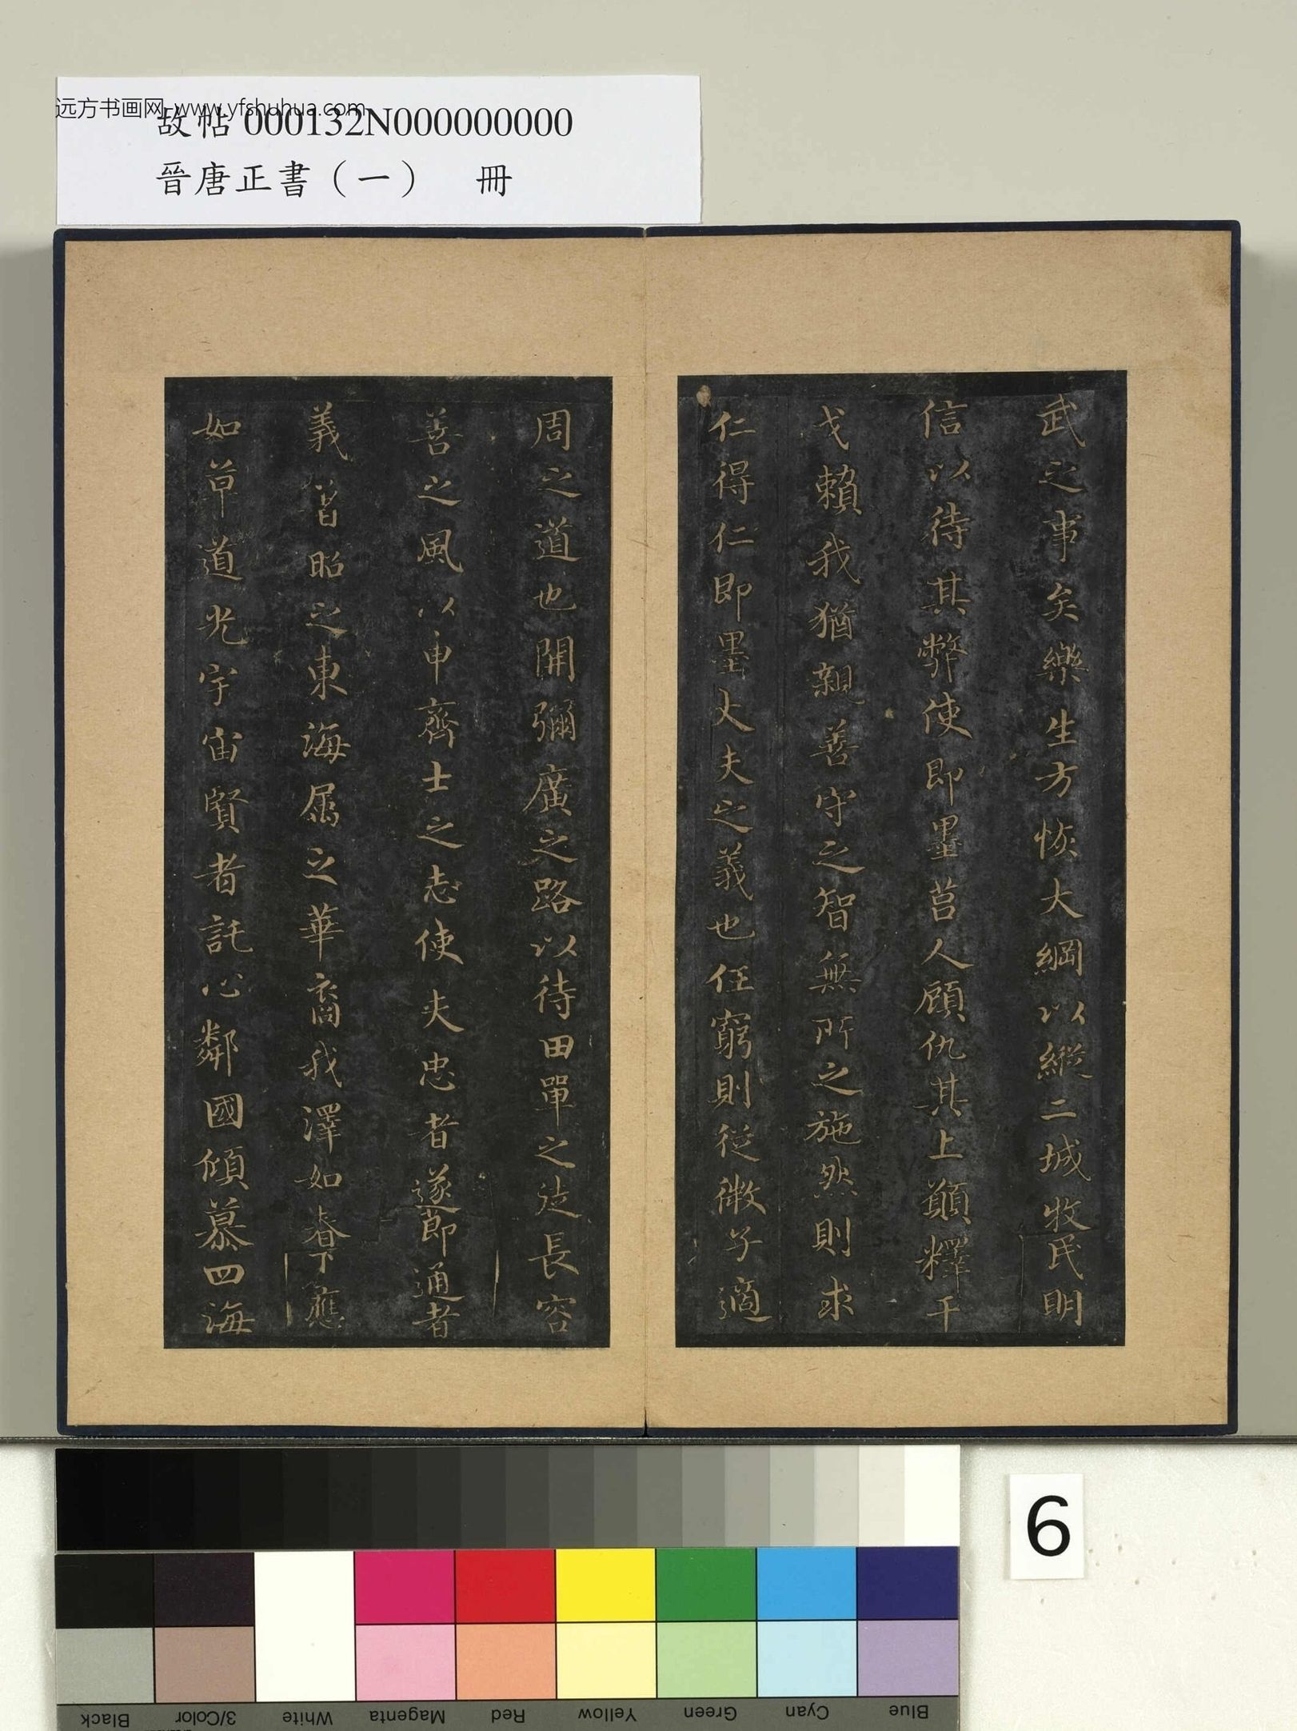 远方书画网 www.yfshuhua.com
故帖 000132N000000000
晉唐正書（一） 冊
武之事矣樂生方恢大綱以縱二城牧民明
信以待其弊使即墨莒人顧仇其上願釋干
戈賴我猶親善守之智無所之施然則求
仁得仁即墨大夫之義也任窮則從微子適
周之道也開彌廣之路以待田單之徒長容
善之風以申齊士之志使夫忠者遂節通者
義著昭之東海属之華裔我澤如春下應
如草道光宇宙賢者託心鄰國傾慕四海
6
Black 3/Color White Magenta Red Yellow Green Cyan Blue